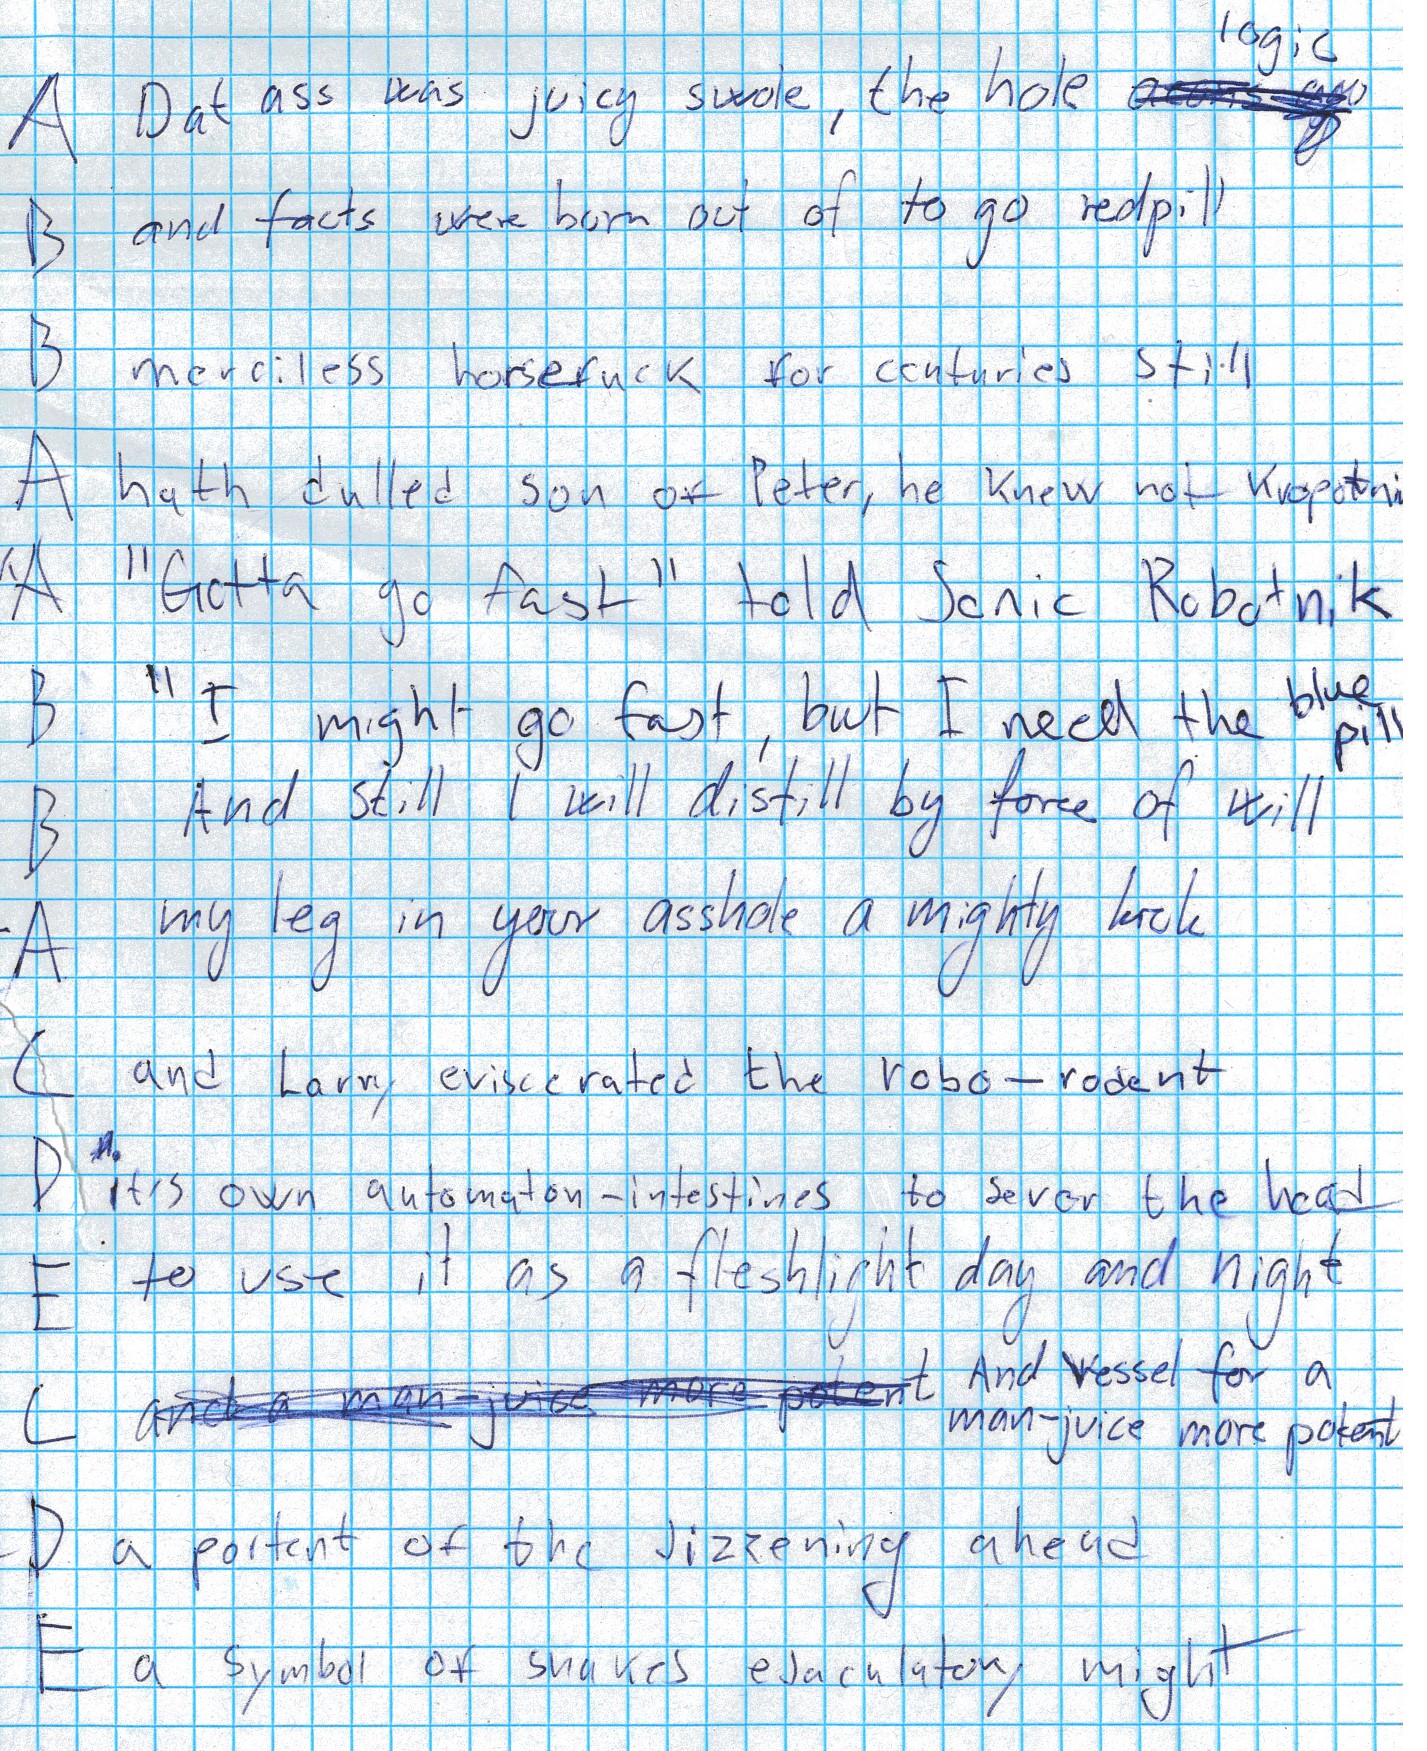 logic
A Dat ass was juicy swole, the hole
B and facts were born out of to go redpill
B merciless horsefuck for centuries still
A hath dulled son of Peter, he knew not Kropotni
A "Gotta go fast" told Sonic Robotnik
B "I might go fast, but I need the blue
pill
B And still I will distill by force of will
A my leg in your asshole a mighty kick
C and Larry eviscerated the robo-rodent
D it's own automaton-intestines to sever the head
E to use it as a fleshlight day and night
C and a man-juice more potent And Vessel for a
man-juice more potent
D a portent of the Jizzening ahead
E a symbol of snakes ejaculatory might